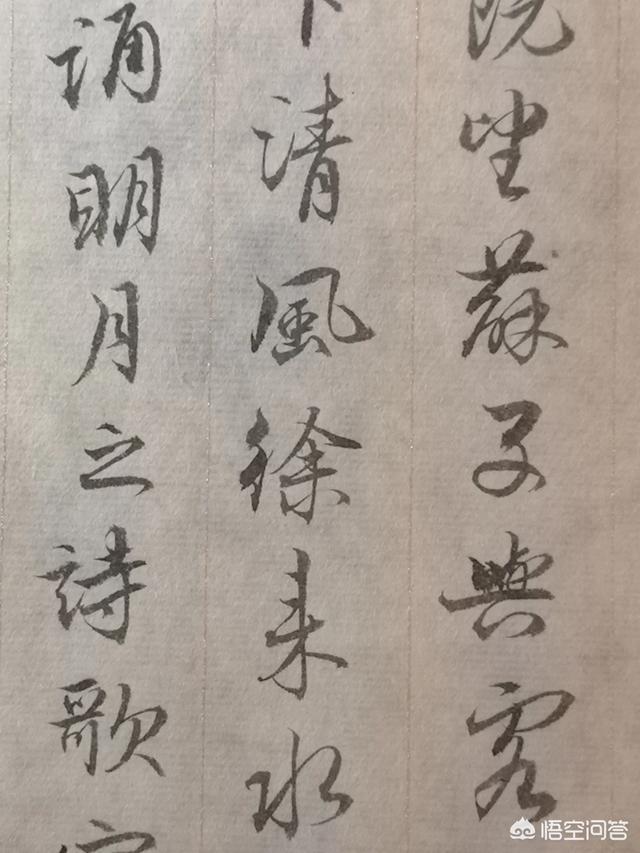 既望蘇子與客
下清風徐来水
誦明月之詩歌
悟空问答